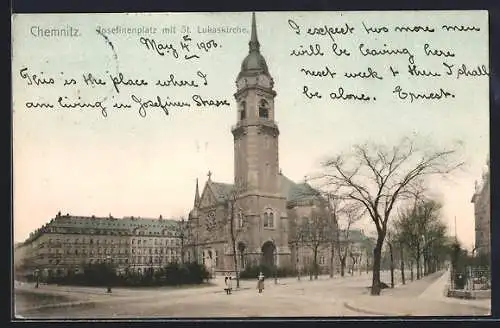 Chemnitz.
Josefinenplatz mit St. Lukaskirche.
May 4th 1906.
This is the place where I
am living in Josefinen Strasse
I expect two more men
will be leaving here
next week & then I shall
be alone. Ernest.